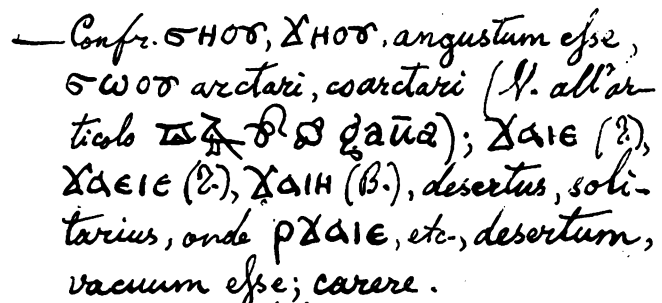 — Confr. ϭⲏⲟⲩ, ϫⲏⲟⲩ, angustum esse,
ϭⲱⲟⲩ arctari, coarctari (V. all'ar-
ticolo gaūa); ϫⲁⲓⲉ (T.),
ϫⲁⲉⲓⲉ (T.), ϫⲁⲓⲏ (B.), desertus, soli-
tarius, onde ⲣϫⲁⲓⲉ, etc., desertum,
vacuum esse; carere.